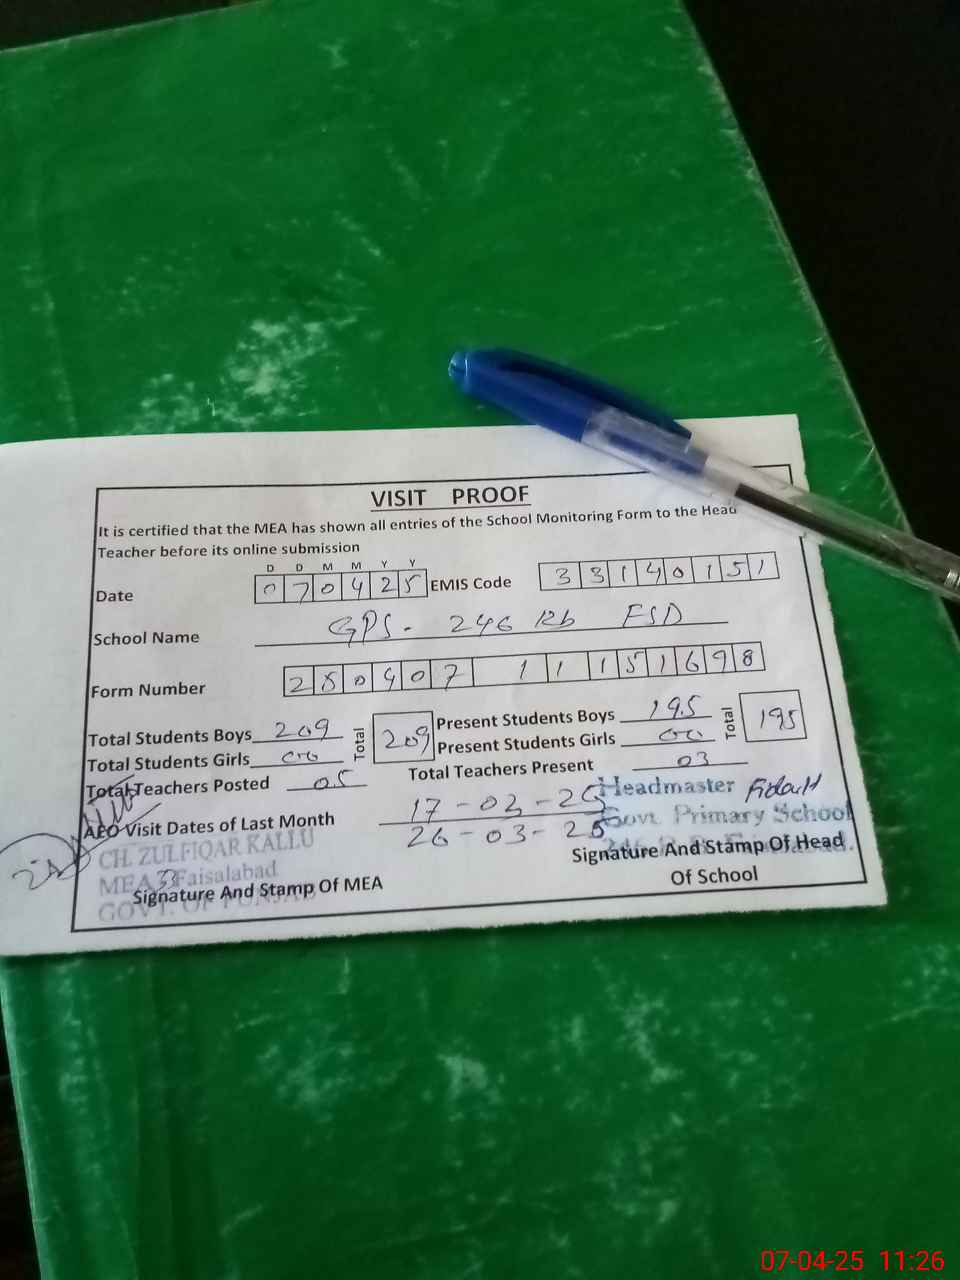 VISIT PROOF
It is certified that the MEA has shown all entries of the School Monitoring Form to the Head
Teacher before its online submission
D D M M Y Y
Date 070425 EMIS Code 33140151
School Name GPS- 246 Rb FSD
Form Number 250407 1 1 1 5 1 6 9 8
Total Students Boys 209 Total 209 Present Students Boys 195 Total 195
Total Students Girls 00 Present Students Girls 00
Total Teachers Posted 05 Total Teachers Present 03
AEO Visit Dates of Last Month 17-03-25
26-03-25
Headmaster
Govt. Primary School
CH. ZULFIQAR KALLU
MEA 33 Faisalabad
GOVT. OF PUNJAB
Signature And Stamp Of MEA
Signature And Stamp Of Head
Of School
07-04-25 11:26